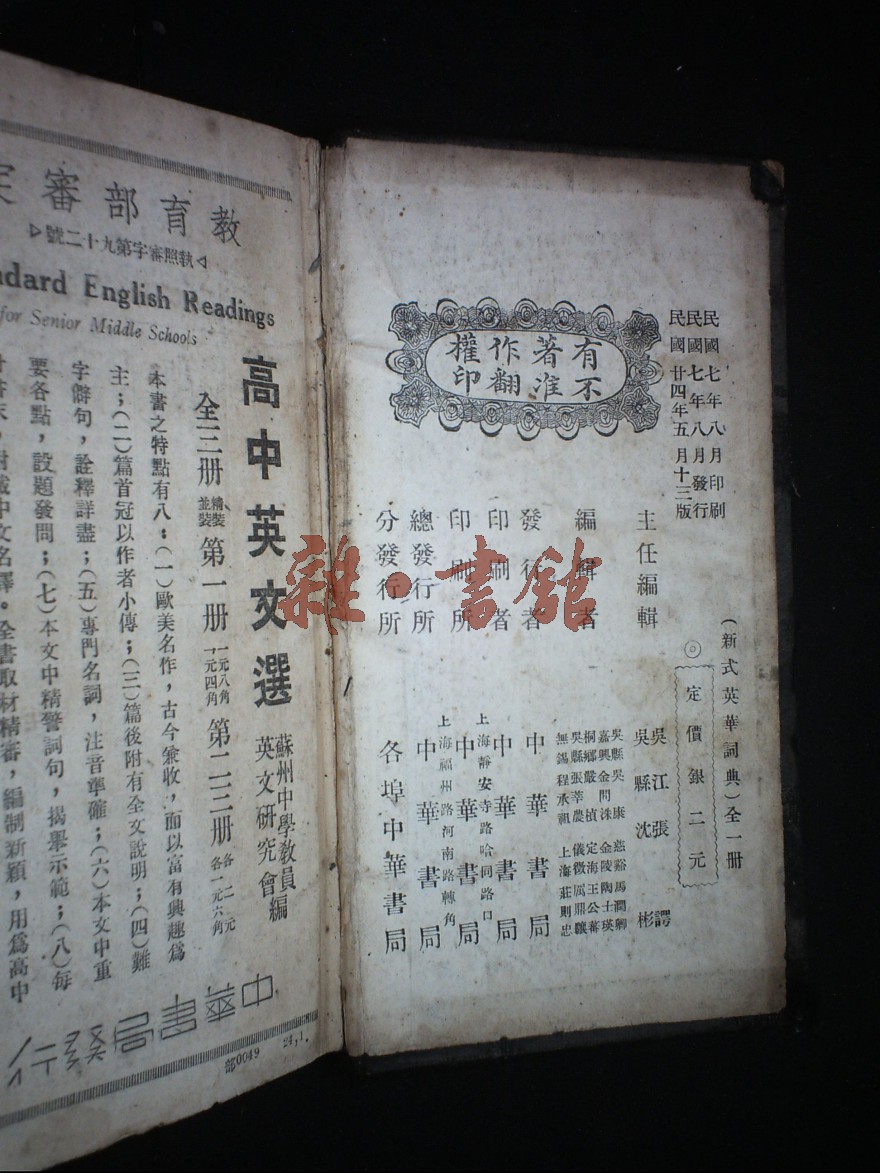 民國七年八月印刷
民國七年八月發行
民國廿四年五月十三版
有不
著准
作翻
權印
(新式英華詞典)全一册
◎定價銀二元
主任編輯
吳江張諤
吳縣沈彬
編輯者
吳縣吳康 慈谿馬潤卿
嘉興金問洙 金陵陶士瑛
桐鄉嚴楨 定海王公蕃
吳縣張莘農 儀徵厲鼎驤
無錫程承祖 上海莊則忠
發行者
中華書局
印刷者
中華書局
印刷所
上海靜安寺路哈同路口
中華書局
總發行所
上海福州路河南路轉角
中華書局
分發行所
各埠中華書局
教育部審定
◁執照審字第九十二號▷
ndard English Readings
for Senior Middle Schools
高中英文選
蘇州中學教員
英文研究會編
全三册
精裝
並裝
第一册
一元八角
一元四角
第二三册
各二元
各一元六角
本書之特點有八:(一)歐美名作,古今兼收,而以富有興趣爲
主;(二)篇首冠以作者小傳;(三)篇後附有全文說明;(四)難
字僻句,詮釋詳盡;(五)專門名詞,注音準確;(六)本文中重
要各點,設題發問;(七)本文中精警詞句,揭舉示範;(八)每
附載中文名譯。全書取材精審,編制新穎,用爲高中
中華書局
部0049
24,1.
雜·書館